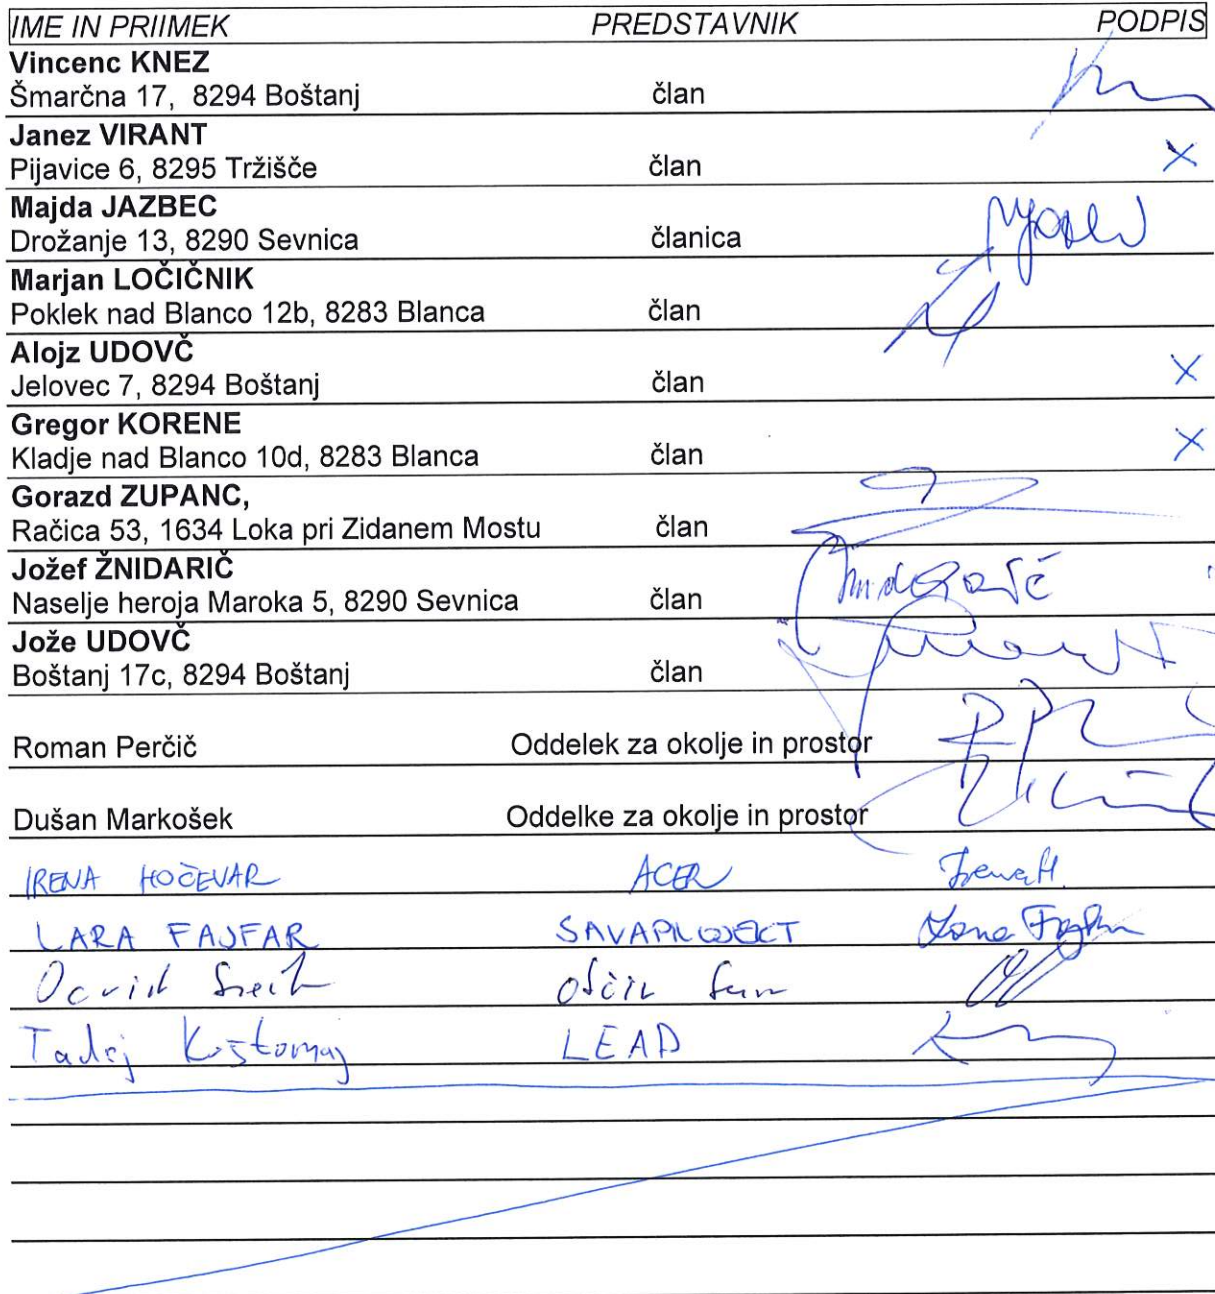 IME IN PRIIMEK PREDSTAVNIK PODPIS
Vincenc KNEZ
Šmarčna 17, 8294 Boštanj član
Janez VIRANT
Pijavice 6, 8295 Tržišče član X
Majda JAZBEC
Drožanje 13, 8290 Sevnica članica
Marjan LOČIČNIK
Poklek nad Blanco 12b, 8283 Blanca član
Alojz UDOVČ
Jelovec 7, 8294 Boštanj član X
Gregor KORENE
Kladje nad Blanco 10d, 8283 Blanca član X
Gorazd ZUPANC,
Račica 53, 1634 Loka pri Zidanem Mostu član
Jožef ŽNIDARIČ
Naselje heroja Maroka 5, 8290 Sevnica član
Jože UDOVČ
Boštanj 17c, 8294 Boštanj član
Roman Perčič Oddelek za okolje in prostor
Dušan Markošek Oddelke za okolje in prostor
IRENA HOČEVAR ACER Irena H.
LARA FAJFAR SAVAPROJEKT
Tadej Kostomaj LEAD